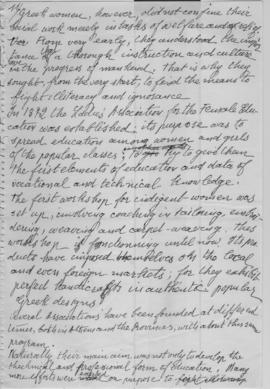 Greek women, however, did not confine their
social work merely in tasks of welfare and
For from very early, they understood the
tance of a thorough instruction and culture
in the progress of mankind. That is why they
sought, from the very start, to find the means to
fight illiteracy and ignorance.
In 18 the Ladies' Association for the Female Edu
cation was established; its purpose was to
spread education among women and girls
of the popular classes; To try to give them
the first elements of education and data of
vocational and technical knowledge.
the first workshop for indigent women was
set up, involving coaching in tailoring, embroi
dering, weaving and carpet-weaving. This
workshop is functionning until now. Its pro
ducts have imposed themselves on the local
and even foreign markets; for they exhibit
perfect handicrafts in authentic popular
Greek designs.
Several Associations have been founded at different
times, both in Athens and the Provinces, with about this same
program.
Naturally their main aim, was not only to develop the
technical and professional form of Education. Many
more efforts were on purpose to fight illiteracy